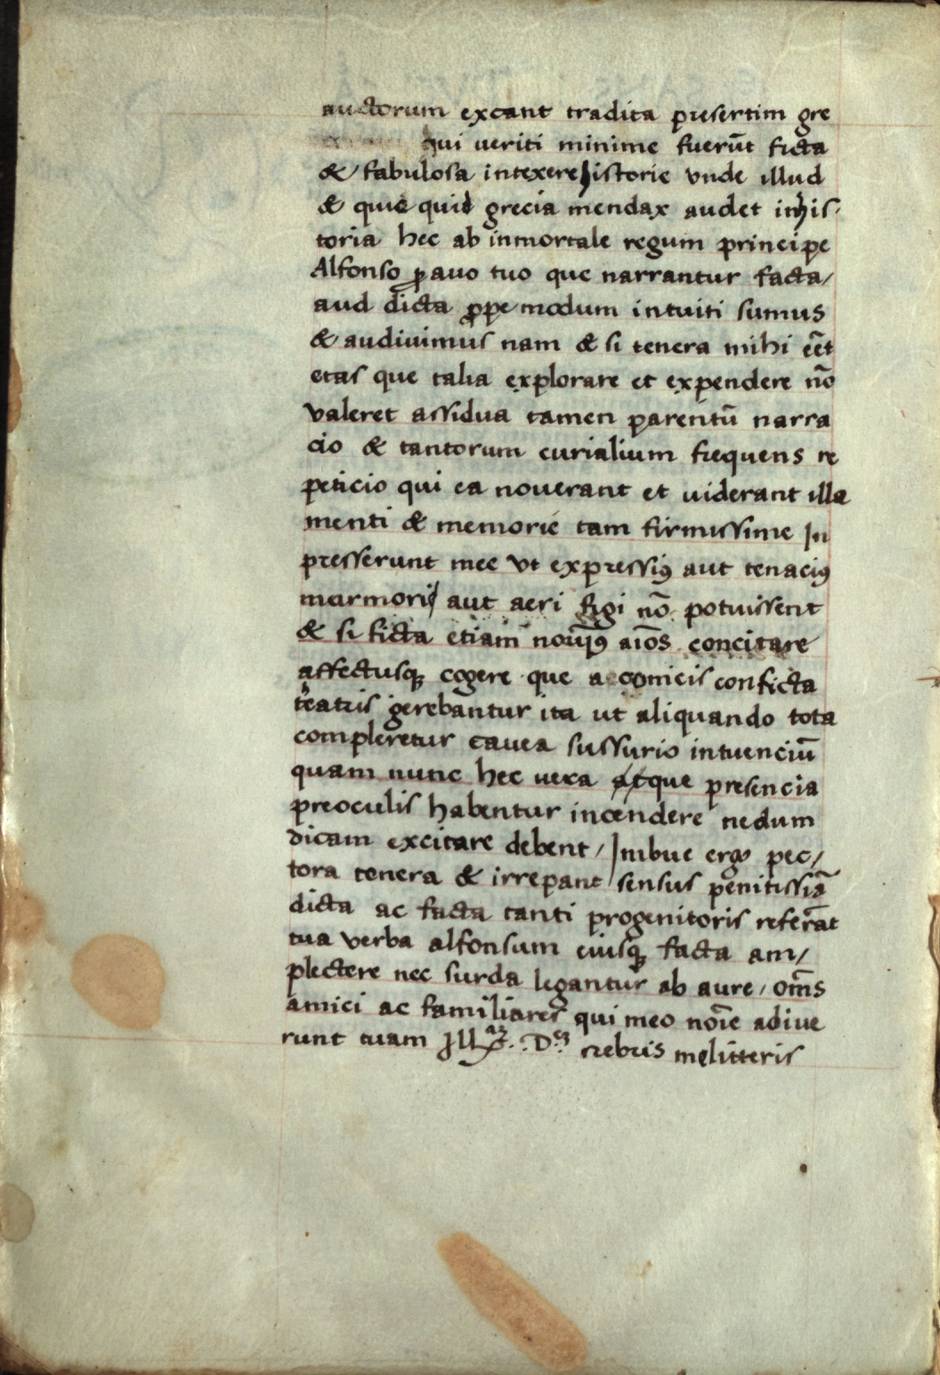 auctorum exeant tradita presertim gre
qui veriti minime fuerūt ficta
& fabulosa intexere historie vnde illud
& quie quid grecia mendax audet in his
toria hec ab inmortale regum principe
Alfonso ꝓauo tuo que narrantur facta/
aud dicta ꝓpe modum intuiti sumus
& audiuimus nam & si tenera mihi eēt
etas que talia explorare et expendere nō
valeret assidua tamen parentū narra
cio & tantorum curialium frequens re
peticio qui ea nouerant et uiderant illa
menti & memorie tam firmissime In
presserunt nec vt expressiꝯ aut tenaciꝯ
marmori aut aeri figi nō potuissent
& si ficta etiam aīos concitare
affectusqꝫ cogere que a comicis conficta
teatris gerebantur ita ut aliquando tota
compleretur cauea sussurio intuenciū
quam nunc hec uera atque presencia
preoculis habentur incendere nedum
dicam excitare debent / Inibue ergo pec/
tora tenera & irrepant sensus penitissiā
dicta ac facta tanti progenitoris referāt
tua verba alfonsum eiusqꝫ facta am/
plectere nec surda legantur ab aure / om̄s
amici ac familiares qui meo noīe adiue
runt tuam Ill. D. crebris me litteris